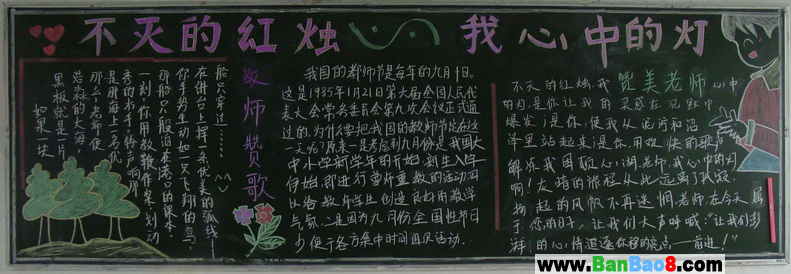 不灭的红烛 我心中的灯
教师赞歌
如果一块
黑板就是一片
浩淼的大海，
那么，老师便
是那海上一名优
秀的水手，铃声响那
一刻，你用教鞭作桨，划动
那船只般泊在港口的课本。
你手势生动如一只飞翔的鸟，
在讲台上挥一条优美的弧线——
船只穿过……
我国的教师节是每年的九月十日。
这是1985年1月21日第六届全国人民代
表大会常务委员会第九次会议正式通
过的。为什么要把我国的教师节定在这
一天呢？原来一是考虑到九月份是我国大
中小学新学年的开始，新生入学
伊始，即进行尊师重教的活动可
以给教师学生创造良好的教学
气氛。二是因为九月份全国性节日
少，便于各方集中时间组织活动。
不灭的红烛，我赞美老师心中
的
爆发；是你，使我从泥污和沼
泽里站起来；是你用欢快的歌声
解冻我困顿心湖。老师，我心中的灯
啊！友情的旅程从此远离了
起的风帆不再迷惘。老师在今天属
于您的日子，让我们大声呼喊："让我们澎
湃的心情追逐你
www.BanBao8.com